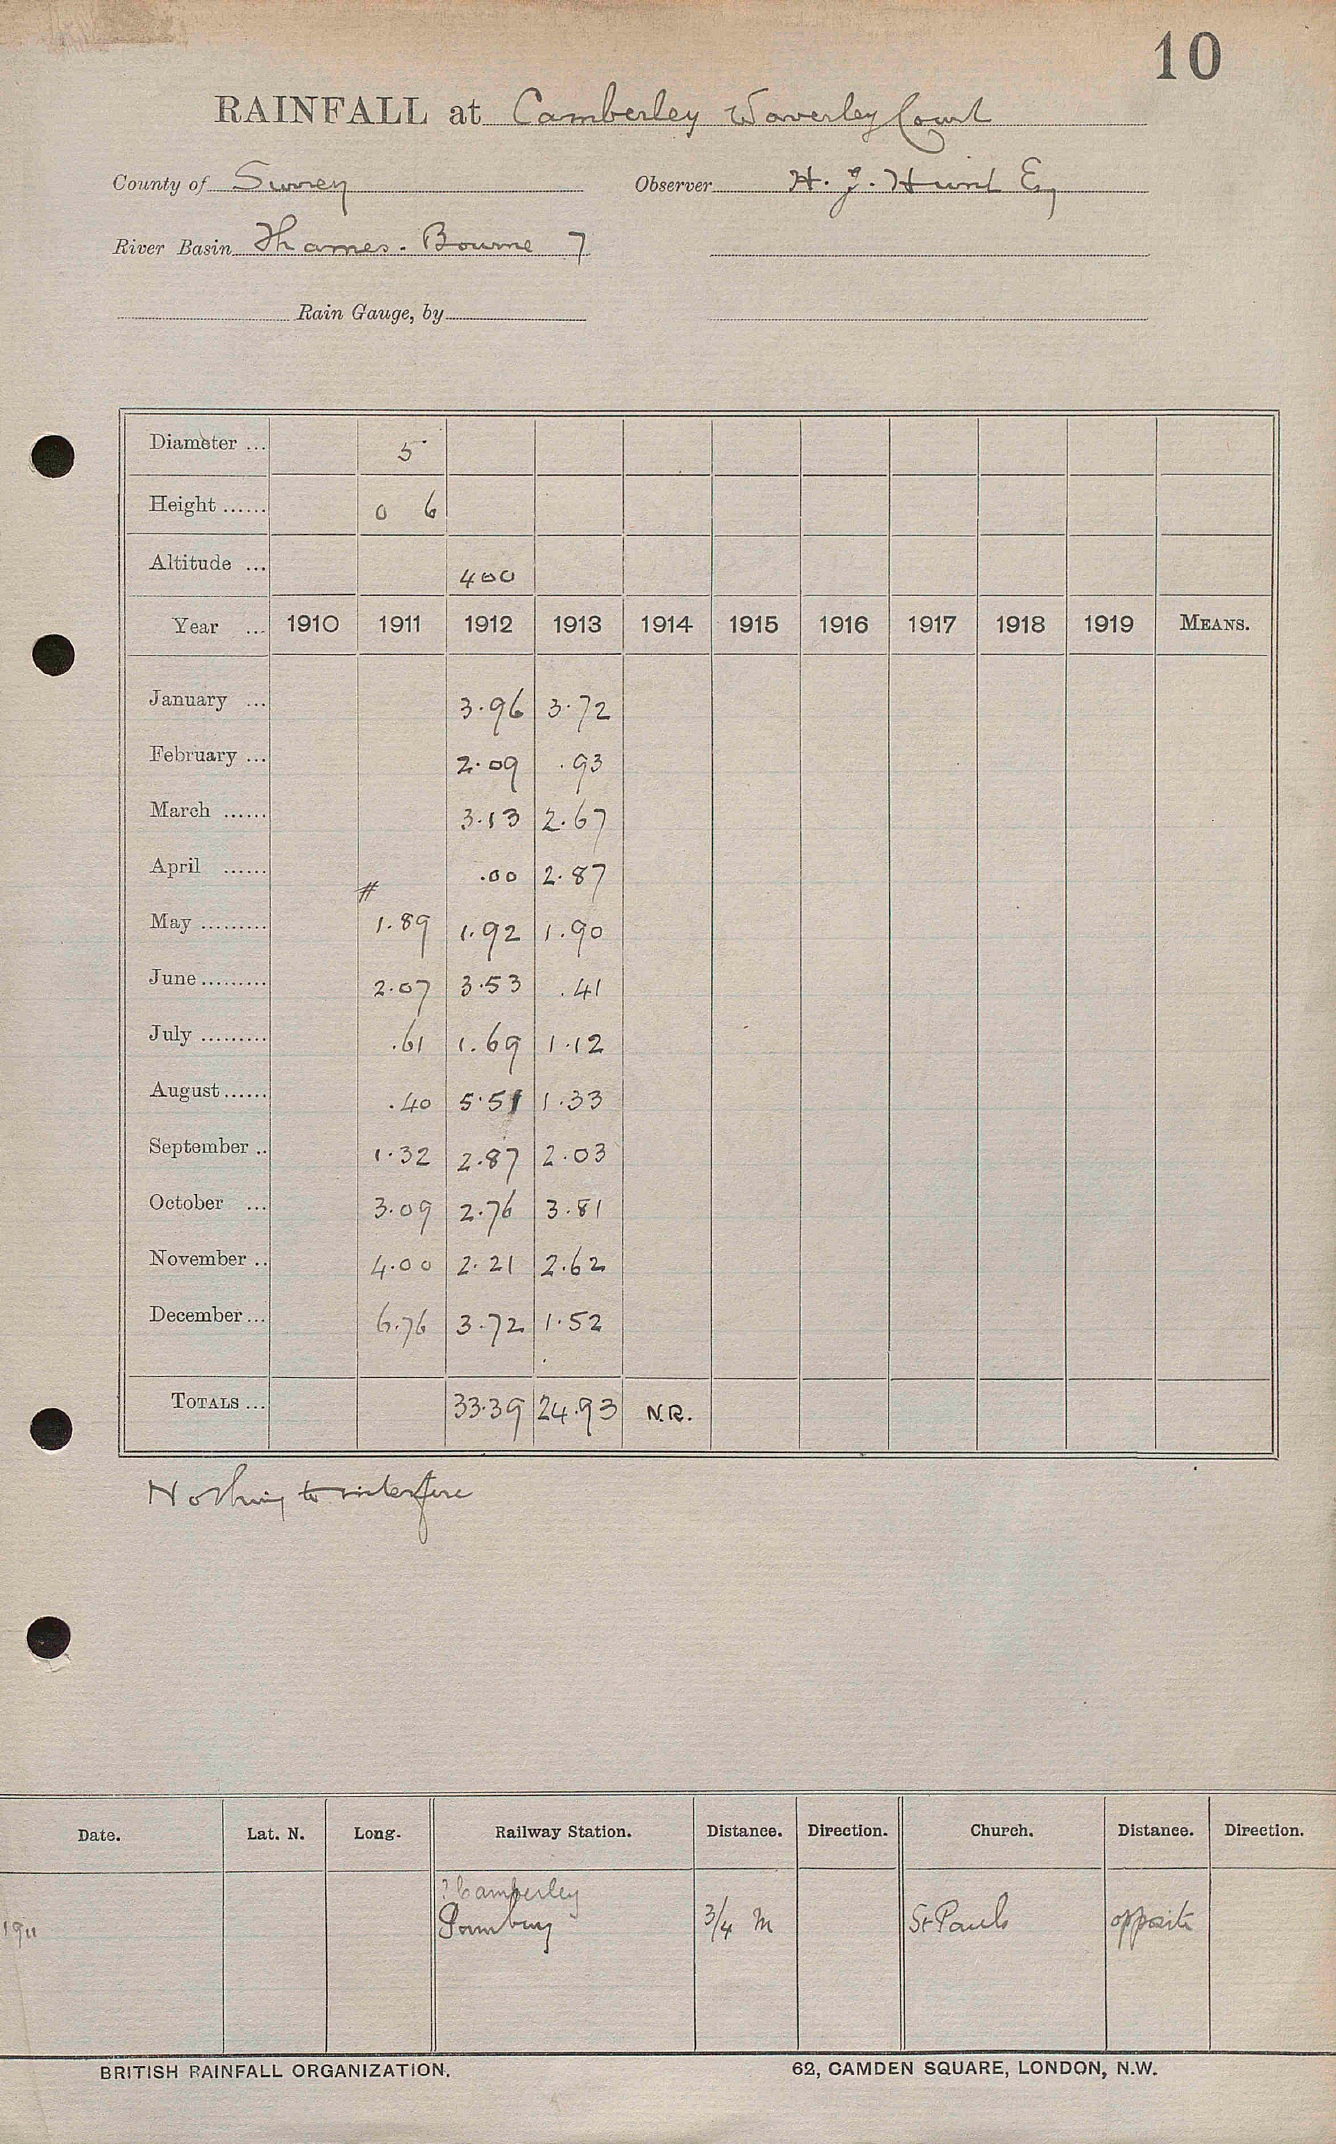 10
RAINFALL at Camberley Waverley Court
County of Surrey Observer H. J. Hunt Esq
River Basin Thames. Bourne 7
Rain Gauge, by
Diameter ... 5
Height ...... 0 6
Altitude ... 400
Year ... 1910 1911 1912 1913 1914 1915 1916 1917 1918 1919 MEANS.
January ... 3.96 3.72
February ... 2.09 .93
March ...... 3.13 2.67
April ...... .00 2.87
#
May ......... 1.89 1.92 1.90
June ......... 2.07 3.53 .41
July ......... .61 1.69 1.12
August ...... .40 5.51 1.33
September .. 1.32 2.87 2.03
October ... 3.09 2.76 3.81
November .. 4.00 2.21 2.62
December ... 6.76 3.72 1.52
TOTALS ... 33.39 24.93 N.R.
Nothing to interfere
Date. Lat. N. Long. Railway Station. Distance. Direction. Church. Distance. Direction.
? Camberley
1911 3/4 M St Pauls opposite
BRITISH RAINFALL ORGANIZATION. 62, CAMDEN SQUARE, LONDON, N.W.